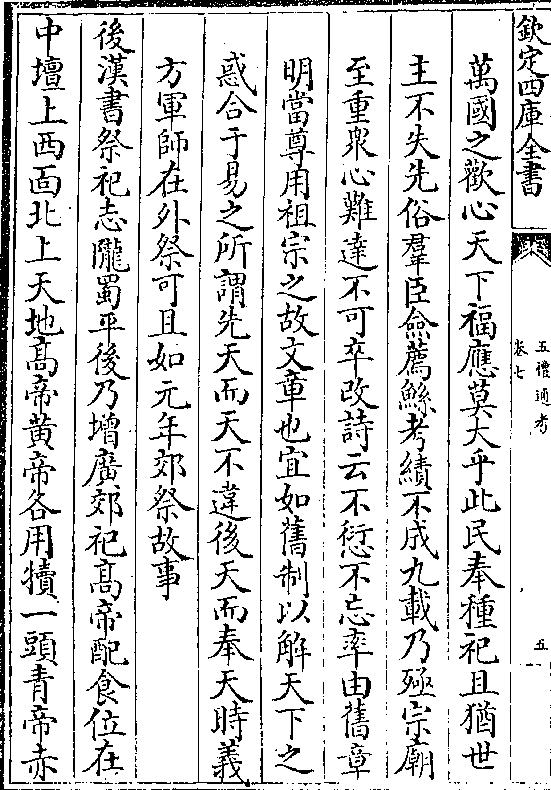 欽定四庫全書
五禮通考
卷七
五
萬國之歡心天下福應莫大乎此民奉種祀且猶世
主不失先俗羣臣僉薦鯀考績不成九載乃殛宗廟
至重衆心難違不可卒改詩云不愆不忘率由舊章
明當尊用祖宗之故文章也宜如舊制以解天下之
惑合于易之所謂先天而天不違後天而奉天時義
方軍師在外祭可且如元年郊祭故事
後漢書祭祀志隴蜀平後乃增廣郊祀髙帝配食位在
中壇上西面北上天地髙帝黄帝各用犢一頭青帝赤